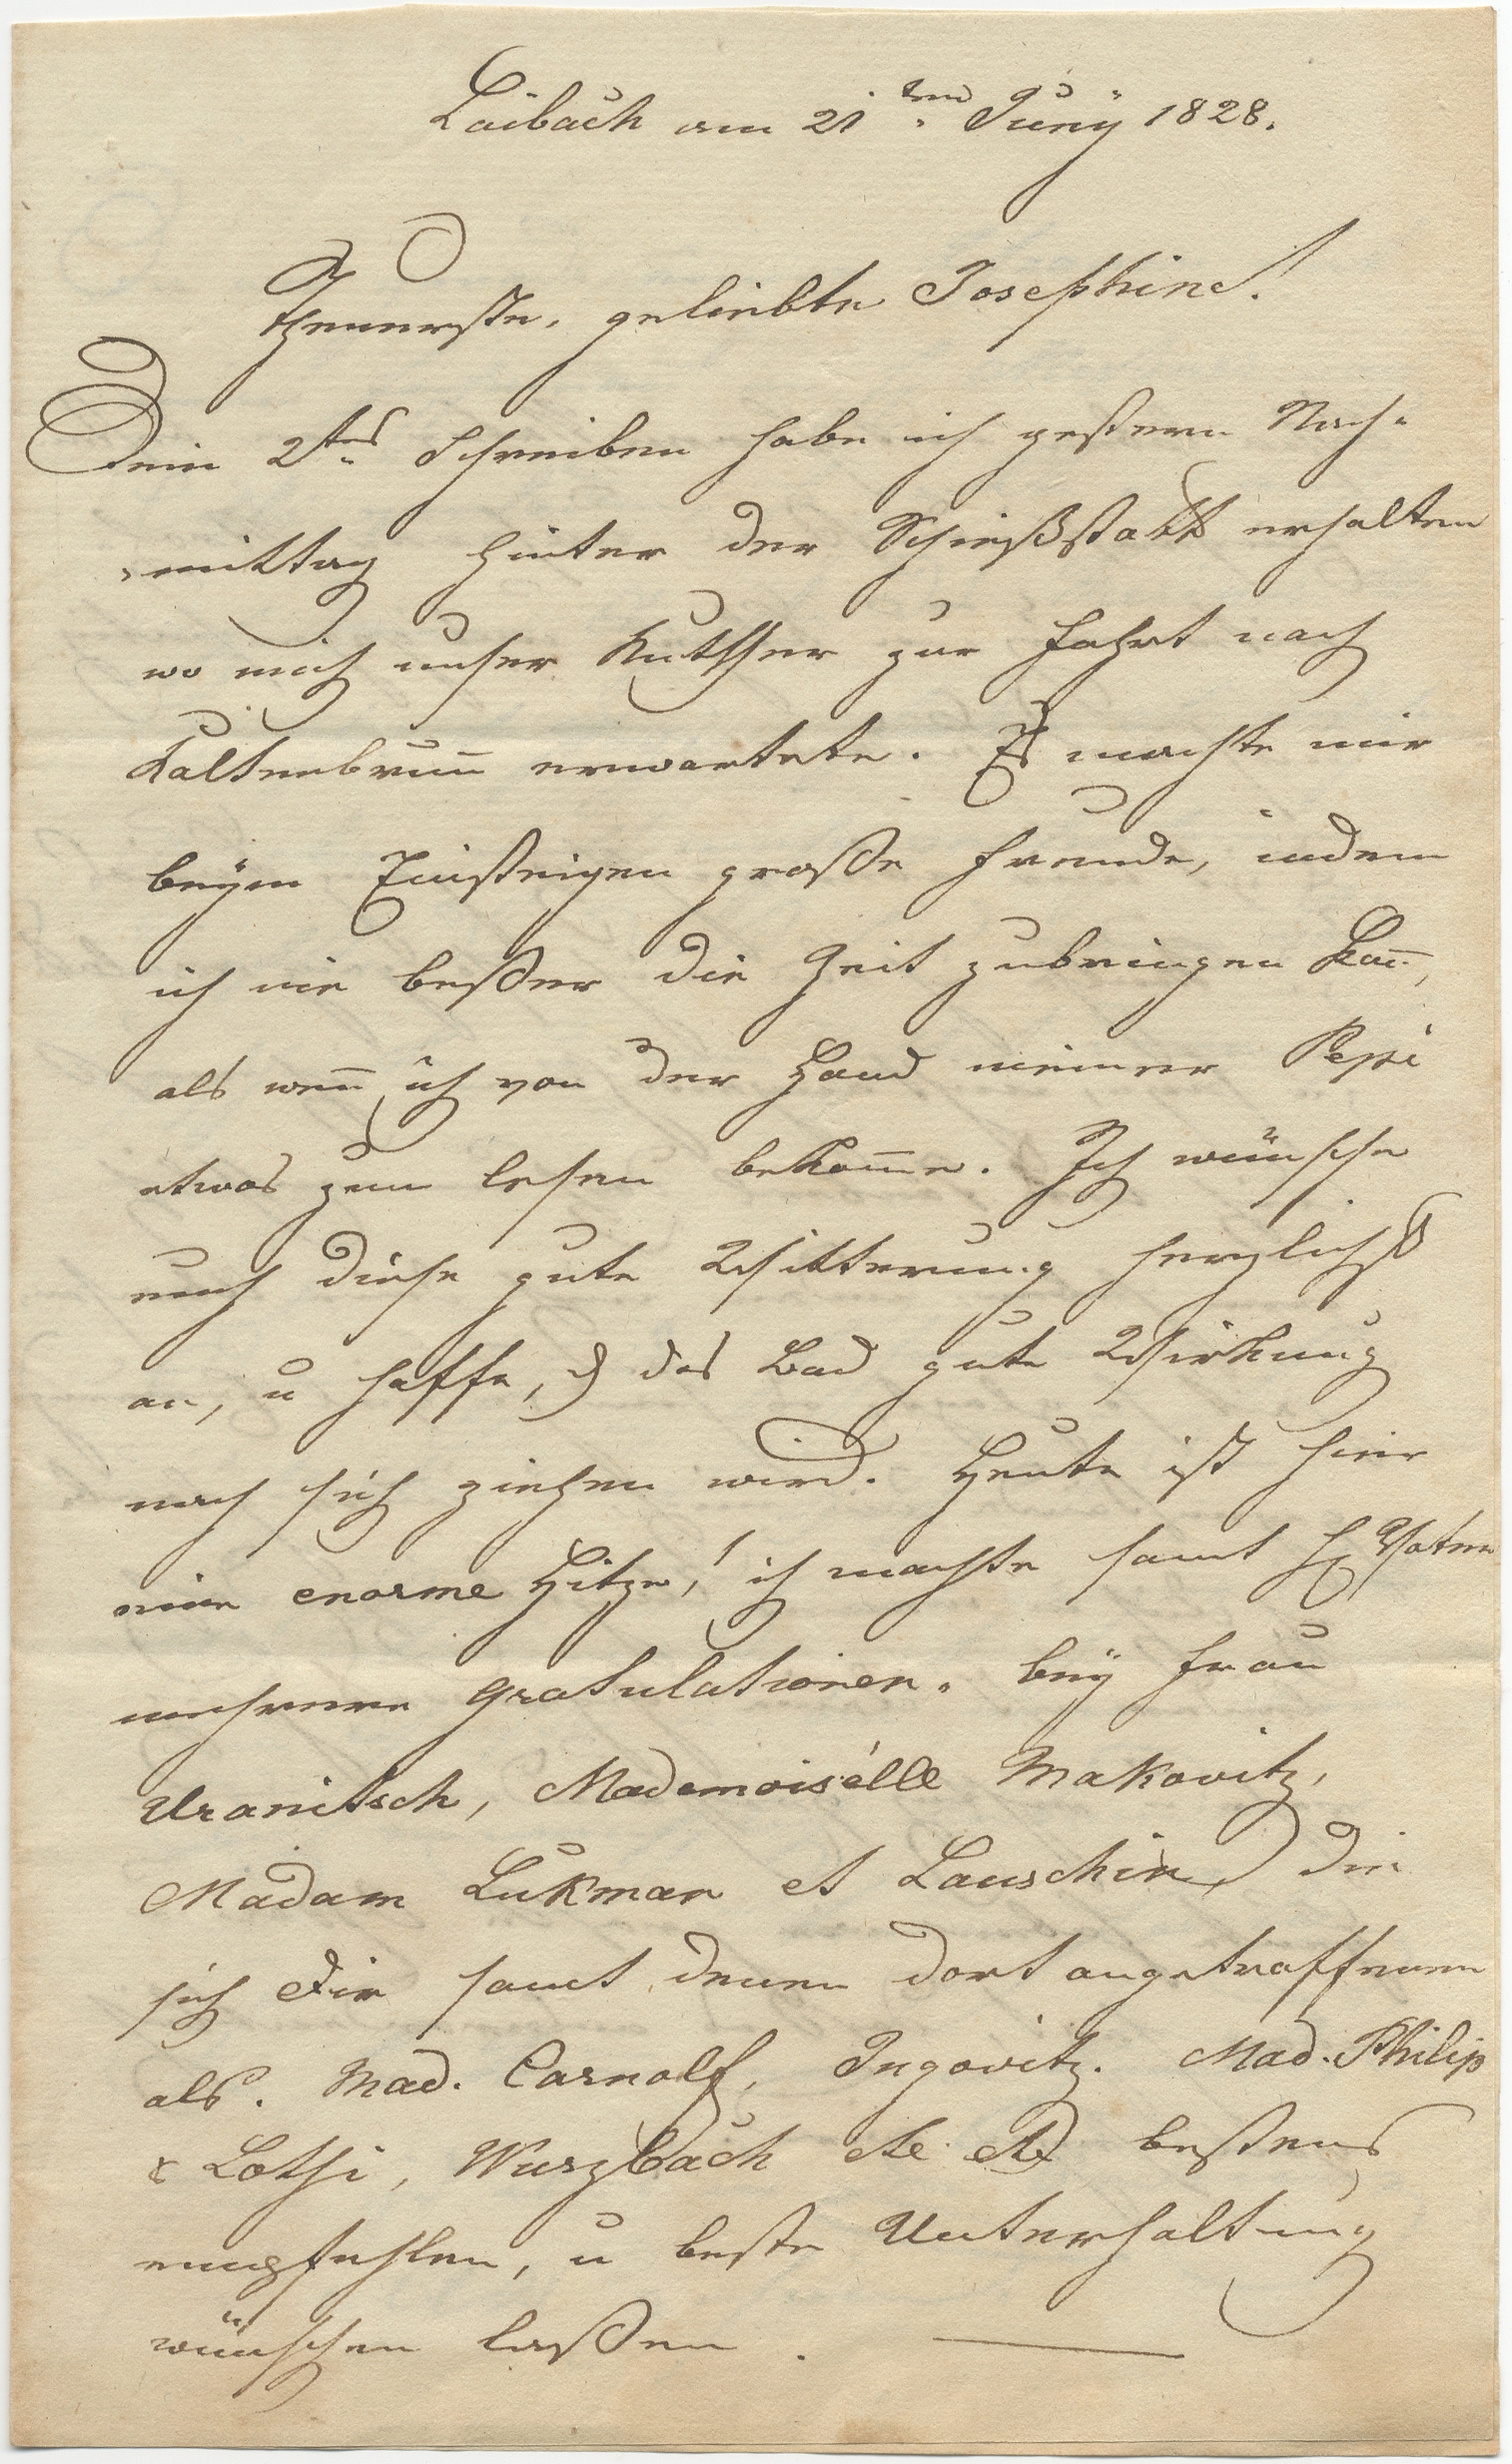 Laibach am 21ten Juny 1828.
Theuerste, geliebte Josephine!
Dein 2tes Schreiben habe ich gestern Nach-
mittag hinter der Schießstatt erhalten
wo mich unser Kutscher zur Fahrt nach
Kaltenbrun̅ erwartete. Es machte mir
beÿm Einsteigen große Freude, indem
ich nie beßer die Zeit zubringen kan̅,
als wen̅ ich von der Hand meiner Pepi
etwas zum lesen bekom̅e. Ich wünsche
euch diese gute Witterung herzlichst
an, u hoffe, daß das Bad gute Wirkung
nach sich ziehen wird. Heute ist hier
eine enorme Hitze,! ich machte samt H Vater
mehrere Gratulationen. beÿ Frau
Uranitsch, Mademoisélle Makovitz,
Madam Lukman et Lauschin, die
sich Dir samt denen dort angetroffenen
als. Mad. Carnolf, Ingovitz. Mad. Philip
& Lothi, Wurzbach etc etc bestens
empfehlen, u beste Unterhaltung
wünschen laßen.